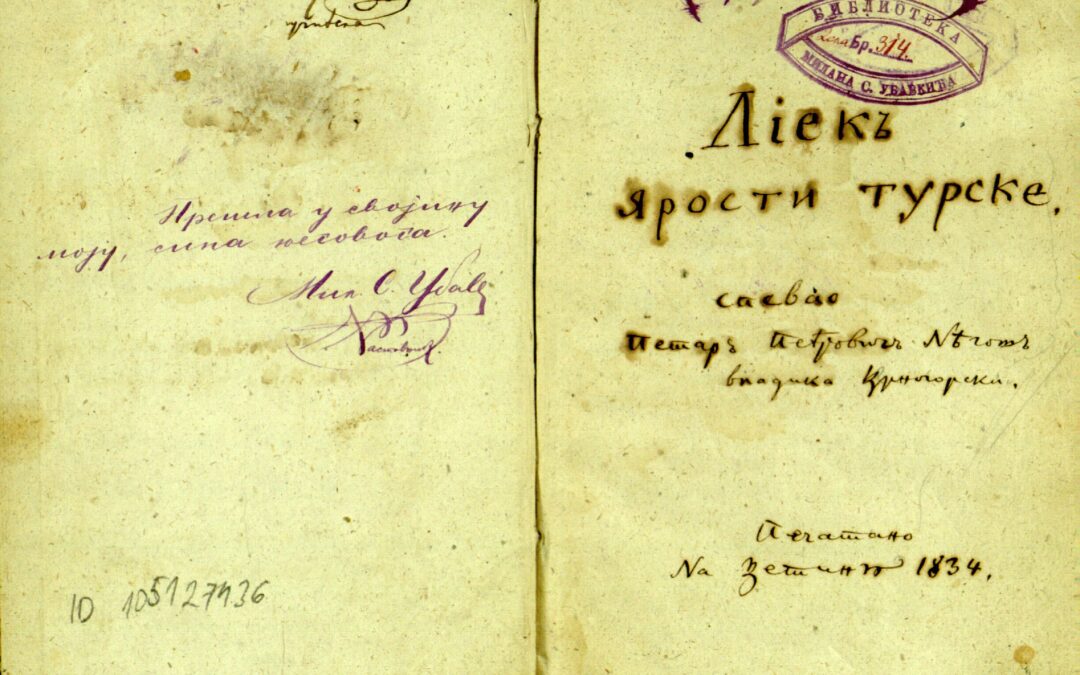 Прешла у својину
моју, сина његовога.
Мил. С. Убавк
ID 105127436
БИБЛИОТЕКА
Бр. 314.
МИЛАНА С. УБАВКИЋА
Ліекъ
ярости турске.
спевао
Петаръ Петровичъ Нѣгошъ
владика Црногорски.
Печатано
На Цетиню 1834.